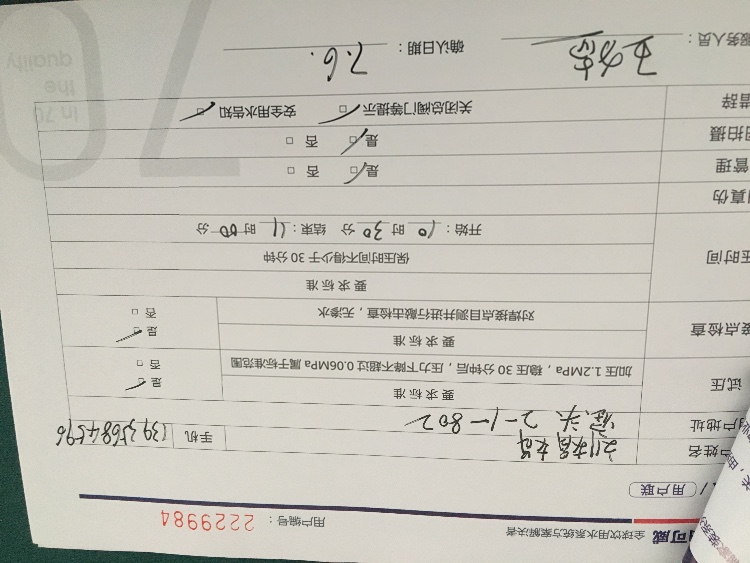 可威 全球饮用水系统方案解决者 用户编号：2229984
用户联
户姓名 手机 13935684596
户地址 2-1-802
试压 要求标准 是
加压1.2MPa，稳压30分钟后，压力下降不超过0.06MPa属于标准范围 否
接点检查 要求标准 是
对焊接点目测并进行敲击检查，无渗水 否
压时间 要求标准
保压时间不得少于30分钟
开始：10时30分 结束：11时00分
真伪
管理 是 否
拍摄 是 否
措辞 关闭总阀门等提示 安全用水告知
服务人员： 确认日期：7.6.
In 70
the
quality
70